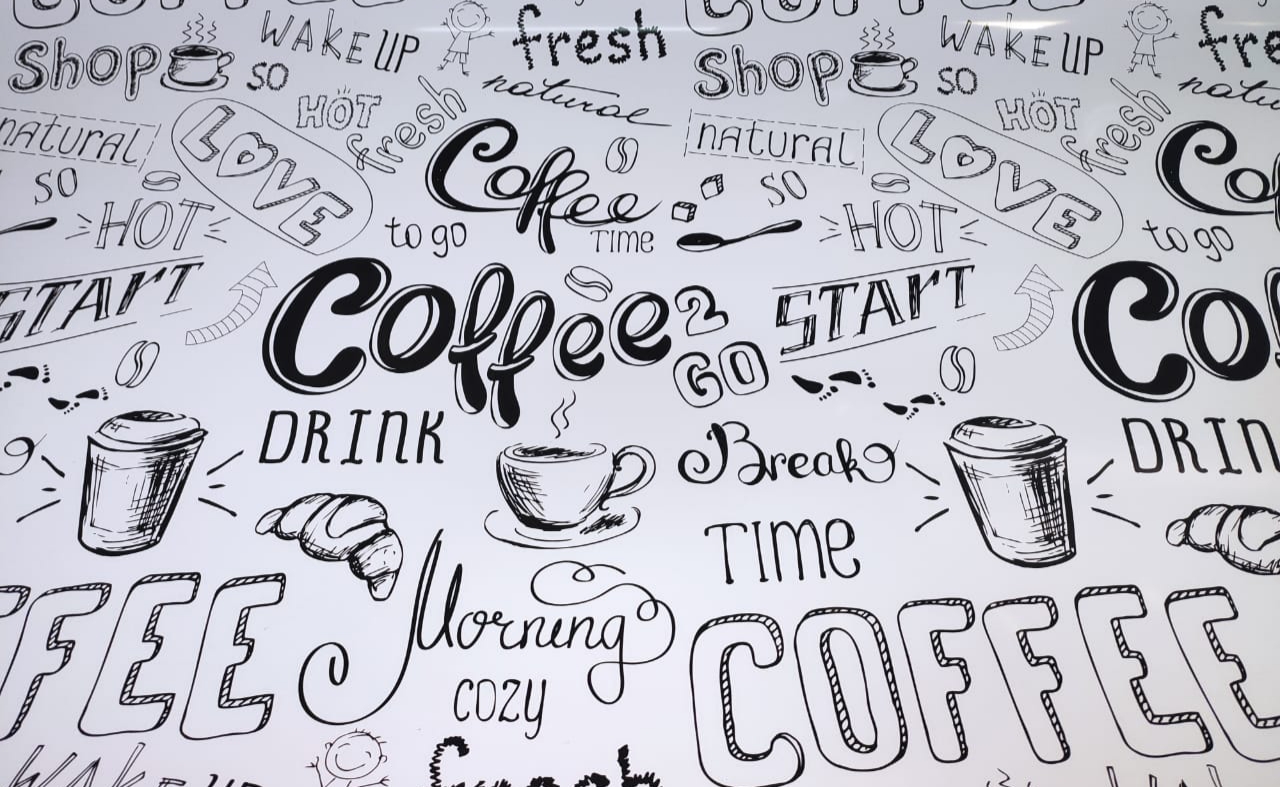 COFFEE
Shop
WAKE UP
fresh
Shop
WAKE UP
fre
so
natural
so
natu
natural
HOT
fresh
natural
HOT
fresh
LOVE
Coffee
TIME
LOVE
Co
so
HOT
to go
so
HOT
to go
START
Coffee 2 GO
START
Co
DRINK
Break
TIME
DRIN
FFEE
Morning
cozy
COFFEE
WAKE UP
fresh